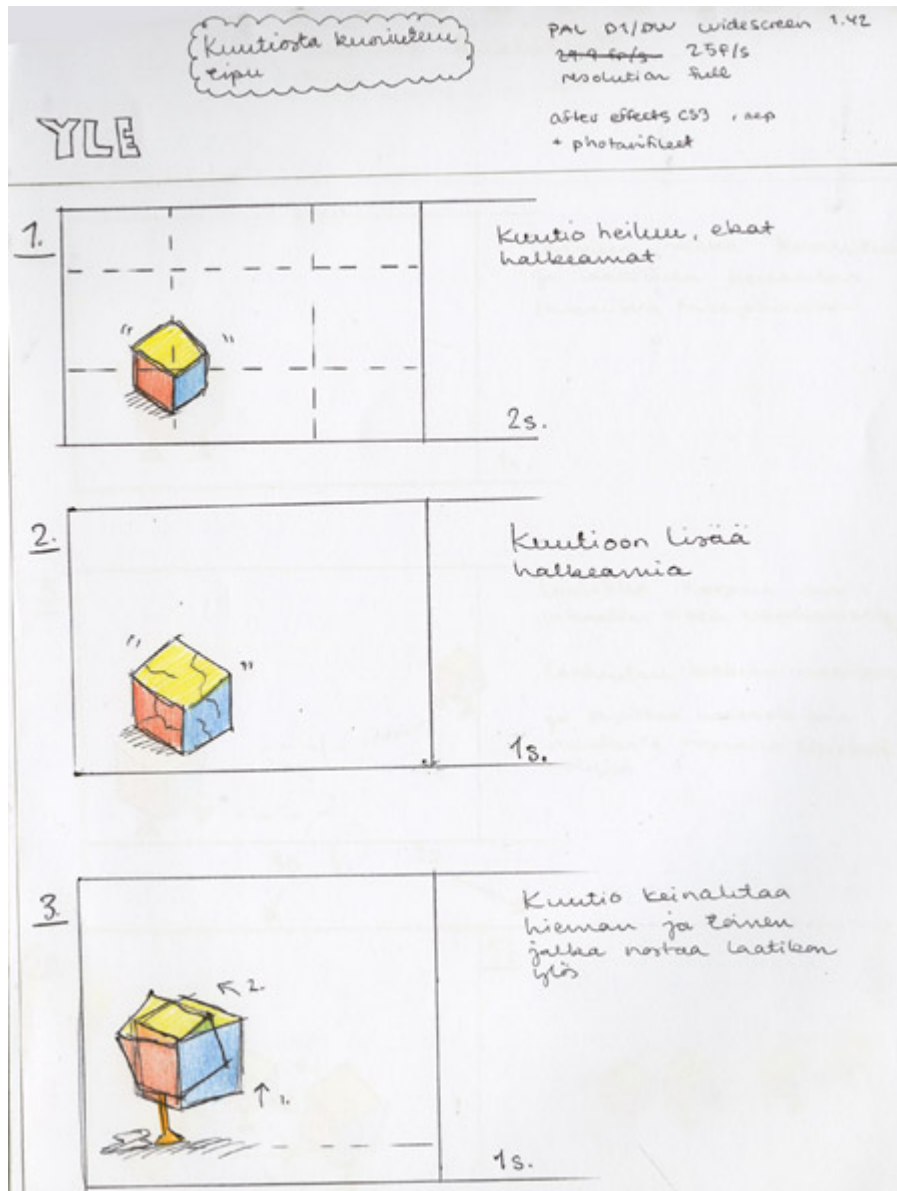 Kuutiosta kuoriutuu
tipu
PAL D1/DV widescreen 1.42
29.9 fp/s 25F/s
resolution full
after effects CS3 .aep
+ photarifileet
YLE
1.
Kuutio heiluu, ekat
halkeamat
2s.
2.
Kuutioon lisää
halkeamia
1s.
3.
Kuutio keinahtaa
hieman ja toinen
jalka nostaa laatikon
ylös
2.
1.
1s.